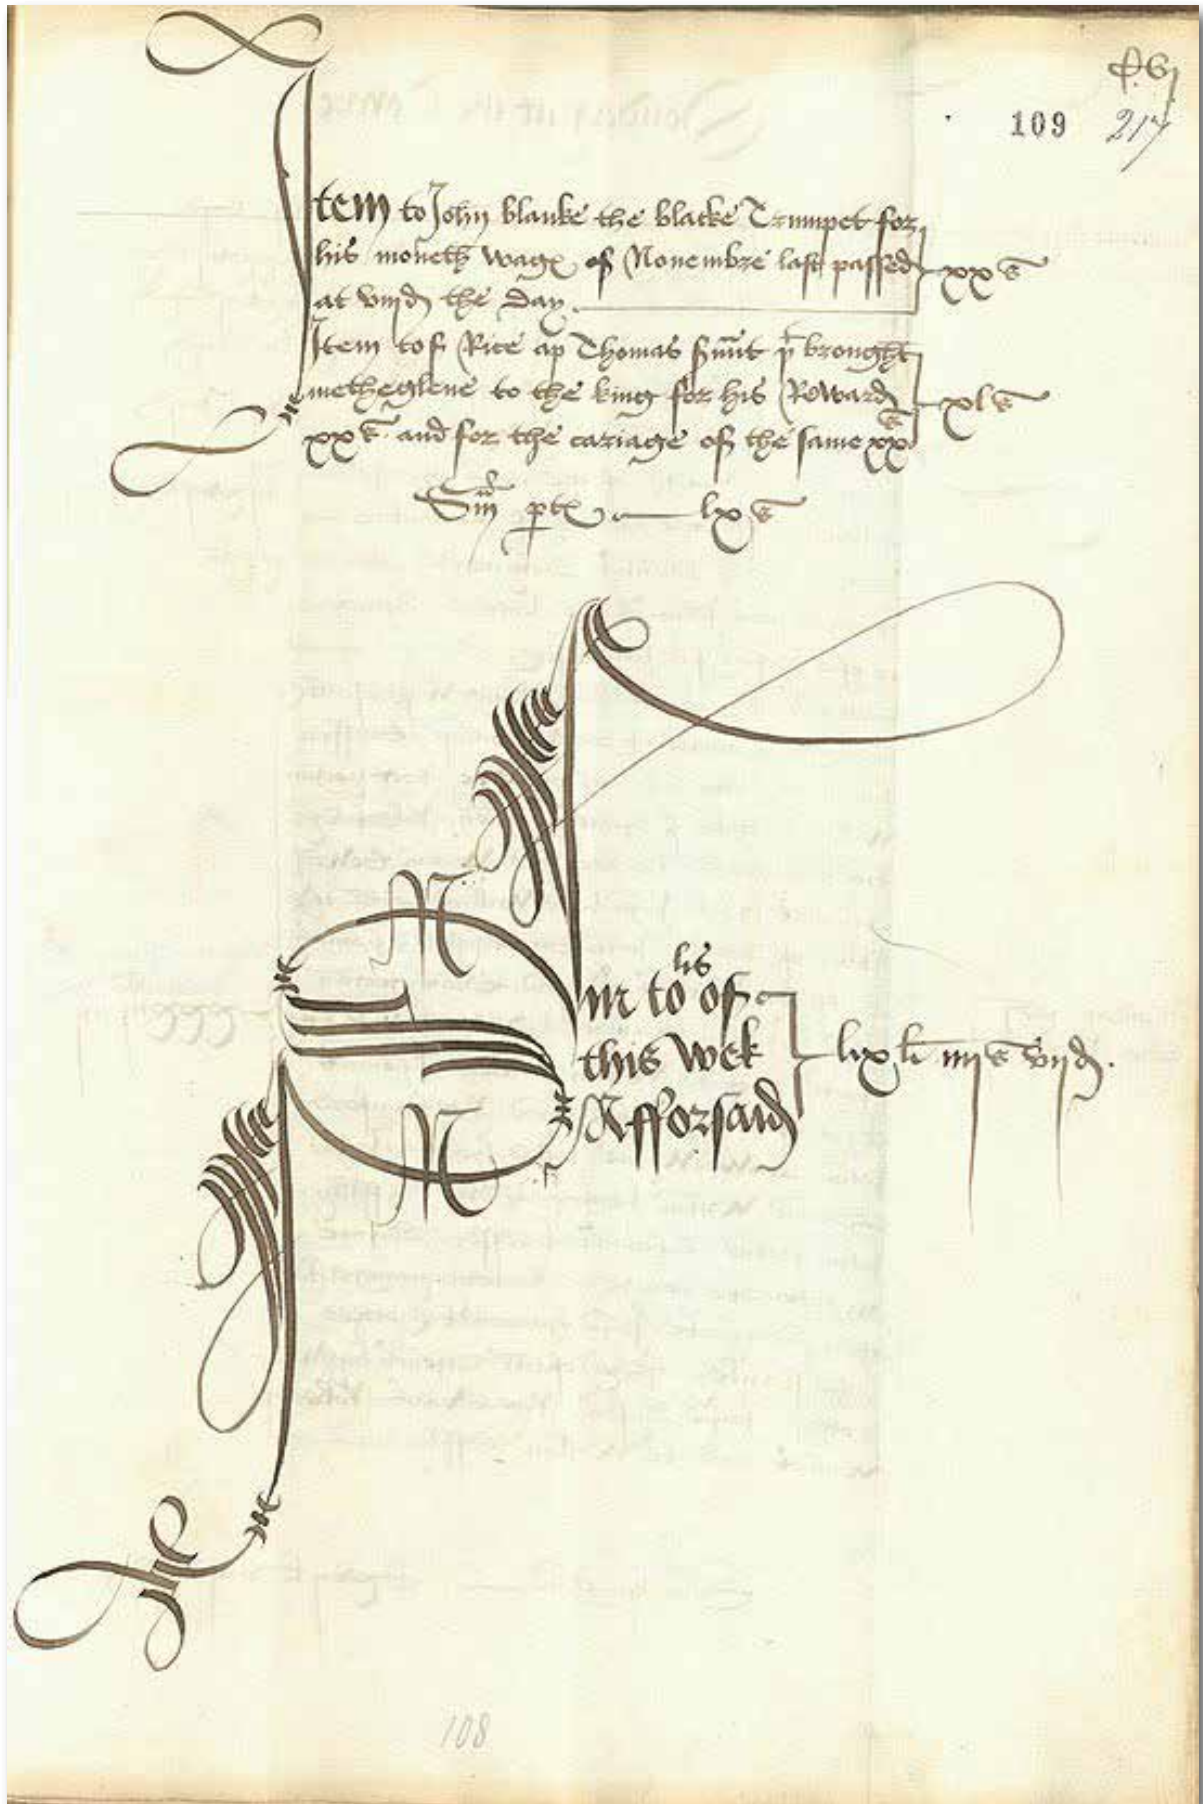 109
217
Item to John blanke the blacke Trumpet for
his moneth wag of Nouembre last passed xx s
at viijd the day
Item to Rice ap Thomas brought
metheglene to the king for his Reward xl s
xx s and for the cariage of the same xx s
Sm ptc lx s
Sm tolis of
this wek lix li iiij s viijd.
Afforsaid
108